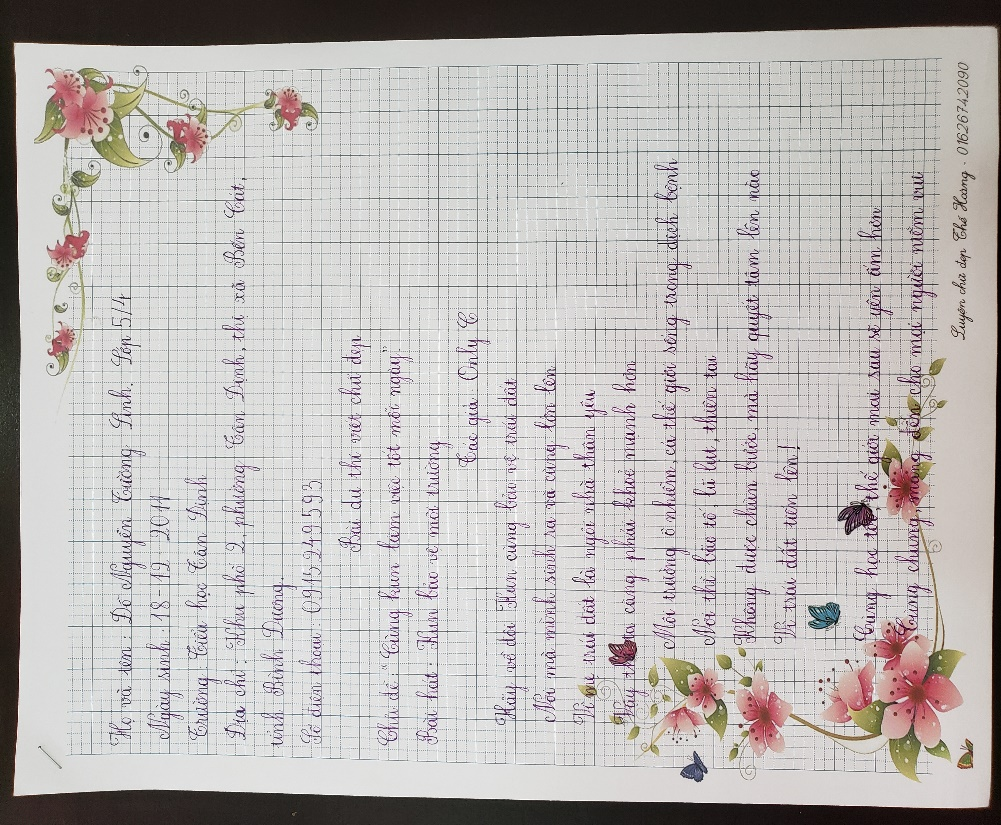 Họ và tên: Đỗ Nguyễn Tường Linh. Lớp 5/4
Ngày sinh: 18-12-2011
Trường Tiểu học Tân Định
Địa chỉ: Khu phố 2, phường Tân Định, thị xã Bến Cát,
tỉnh Bình Dương.
Số điện thoại: 0915249593
Bài dự thi viết chữ đẹp
Chủ đề: "Cùng kun làm việc tốt mỗi ngày"
Bài hát: Kun bảo vệ môi trường
Tác giả Only C
Hãy về đội Kun cùng bảo vệ trái đất
Nơi mà mình sinh ra và cùng lớn lên
Vì mẹ trái đất là ngôi nhà thân yêu
Hãy ta càng phải khoẻ mạnh hơn
Môi trường ô nhiễm, cả thế giới sống trong dịch bệnh
Nơi thì bão tố, lũ lụt, thiên tai
Không được chùn bước, mà hãy quyết tâm lên nào
Vì trái đất tiến lên!
Cùng học thế giới mai sau sẽ yên ấm hơn
Chung, mang đến cho mọi người niềm vui
Luyện chữ đẹp Thế Hoàng . 01626742090